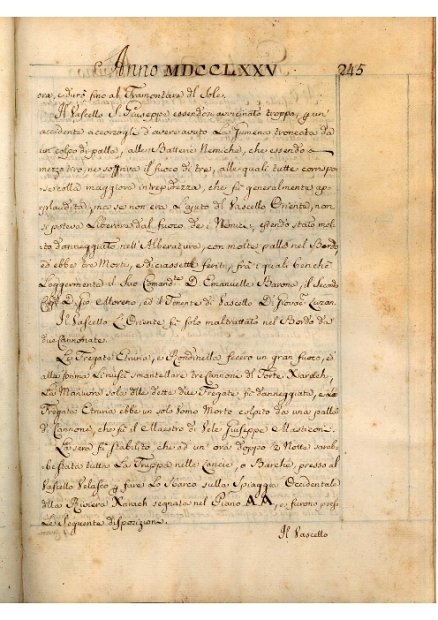 Anno MDCCLXXV 245
ora, e durò fino al Tramontare del Sole.
Il Vascello S. Giuseppe essendosi avvicinato troppo, e un'
accidente accorsogli d'avere avuto La Jumena troncata da
un colpo di palla, alle Batterie Nemiche, che essendo a
mezzo tiro, ne soffriva il fuoco di tre, alle quali tutte corrispo-
se colla maggiore intrepidezza, che fù generalmente ap-
plaudita, ma se non era L'ajuto del Vascello Oriente, non
si poteva Liberare dal fuoco dei Nemici, essendo stato mol-
to danneggiato nell'Alberatura, con molte palle nel Bordo,
ed ebbe tre Morti, e diciassette feriti, frà i quali benchè
Leggermente il Suo Comandte D. Emanuelle Barona, il Secondo
D. Gio. Moreno, ed il Tenente di Vascello D. Luzan.
Il Vascello L'Oriente fù solo maltrattato nel Bordo da
due Cannonate.
Le Fregate Etruria, e Rondinella fecero un gran fuoco, ed
alla prima Li riuscì smantellare tre Cannoni del Forte Xarach,
La Marina sola delle dette due Fregate fù danneggiata, e La
Fregata Etruria ebbe un solo Uomo Morto colpito da una palla
di Cannone, che fù il Maestro di Vele Giuseppe Mastriconi.
La sera fù stabilito che ad un'ora doppo di Notte sareb-
be stata tutta La Truppa nelle Lancie, o Barche, presso al
Vascello Velasco per fare Lo Sbarco sulla Spiaggia Occidentale
della Riviera Xarach segnata nel Piano AA, e furono prese
Le Seguente disposizione.
Il Vascello